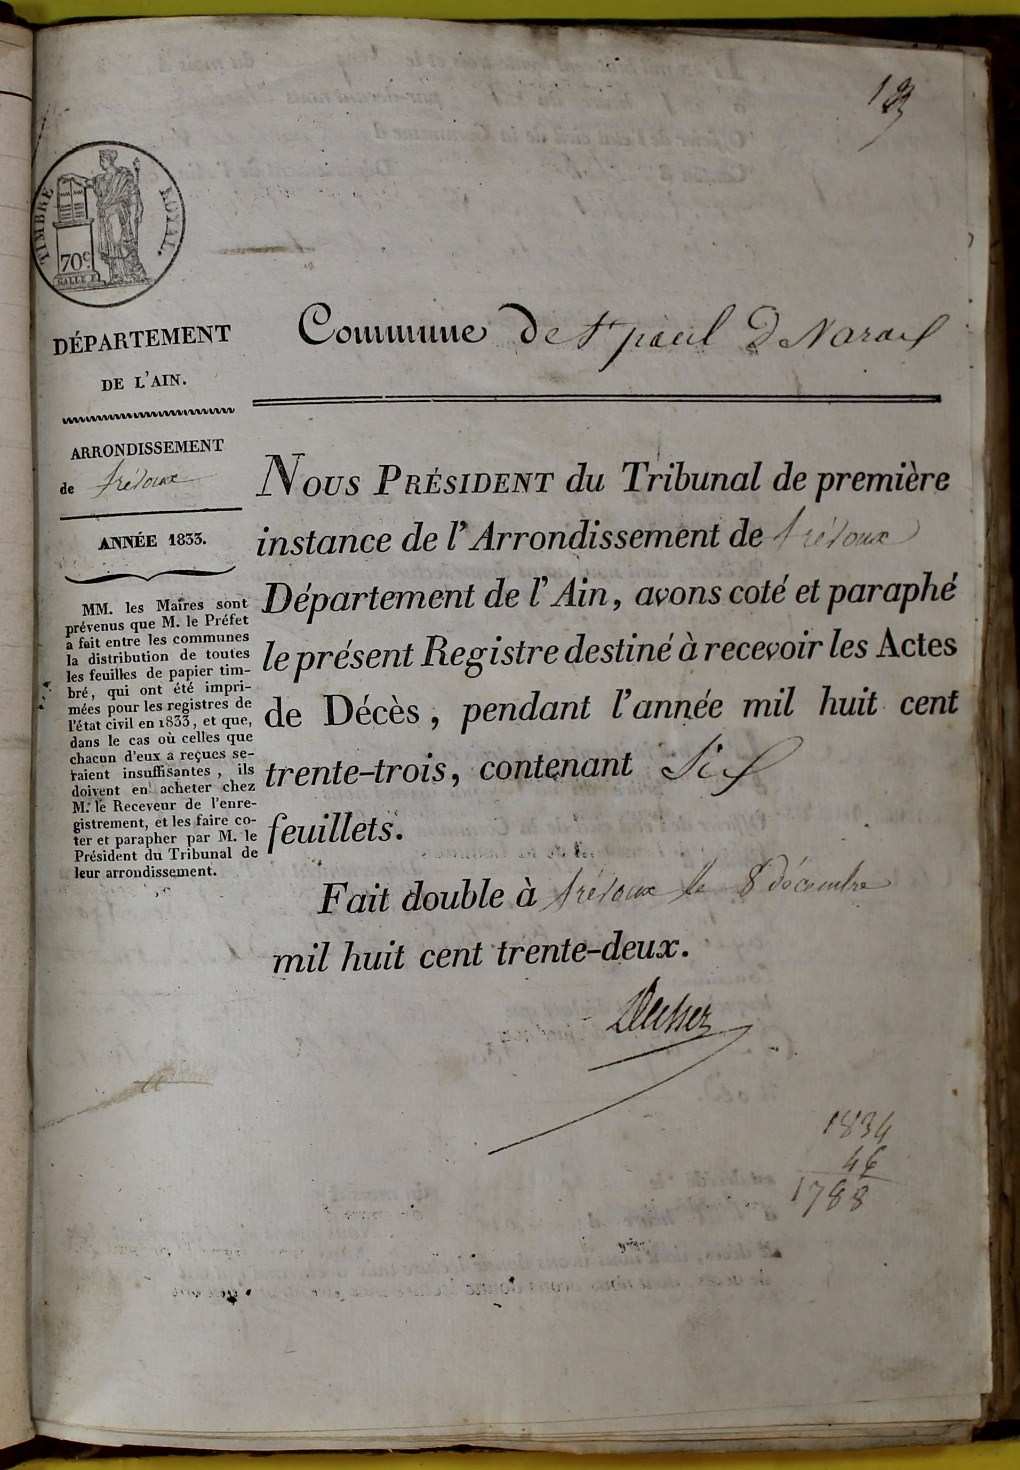 TIMBRE ROYAL.
70c
DÉPARTEMENT
DE L'AIN.
ARRONDISSEMENT
de trévoux
ANNÉE 1833.
MM. les Maires sont
prévenus que M. le Préfet
a fait entre les communes
la distribution de toutes
les feuilles de papier tim-
bré, qui ont été impri-
mées pour les registres de
l'état civil en 1833, et que,
dans le cas où celles que
chacun d'eux a reçues se-
raient insuffisantes, ils
doivent en acheter chez
M. le Receveur de l'enre-
gistrement, et les faire co-
ter et parapher par M. le
Président du Tribunal de
leur arrondissement.
Commune de St paul De Varax
NOUS PRÉSIDENT du Tribunal de première
instance de l'Arrondissement de trévoux
Département de l'Ain, avons coté et paraphé
le présent Registre destiné à recevoir les Actes
de Décès, pendant l'année mil huit cent
trente-trois, contenant Six
feuillets.
Fait double à trévoux le 8 décembre
mil huit cent trente-deux.
1834
46
1788